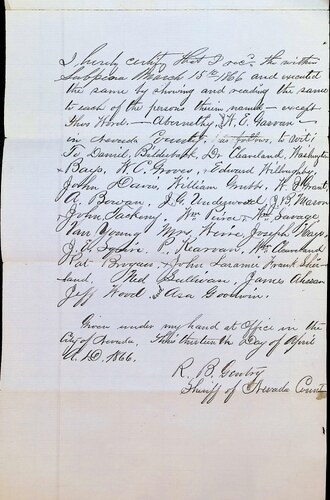 I hereby certify that I rec'd the within
Subpoena March 15th 1866 and executed
the same by showing and reading the same
to each of the persons therein named - except
Thos Ward. - Abernethy, W. E. Garvan -
in Nevada County, as follows, to wit;
To Daniel, Bilderback, Dr Cleanland, Washington
Bays, W. C. Groves, Edward Willoughby,
John Davis, William Grubb, W. P. Grant,
A. Bowan, J. G. Underwood, J. B. Mason
John Wm Peirce, Wm Savage,
Van Young Mrs Weire, Joseph Mays,
J. H. Squire P. Karvan, Wm Cleanland,
Pat Brogan, John Laramie Frank Sher-
land, Ned Sullivan, James
Jeff Wood & Asa Goodwin.
Given under my hand at Office in the
City of Nevada. This thirteenth Day of April
A. D. 1866.
R. B. Gentry
Sheriff of Nevada County